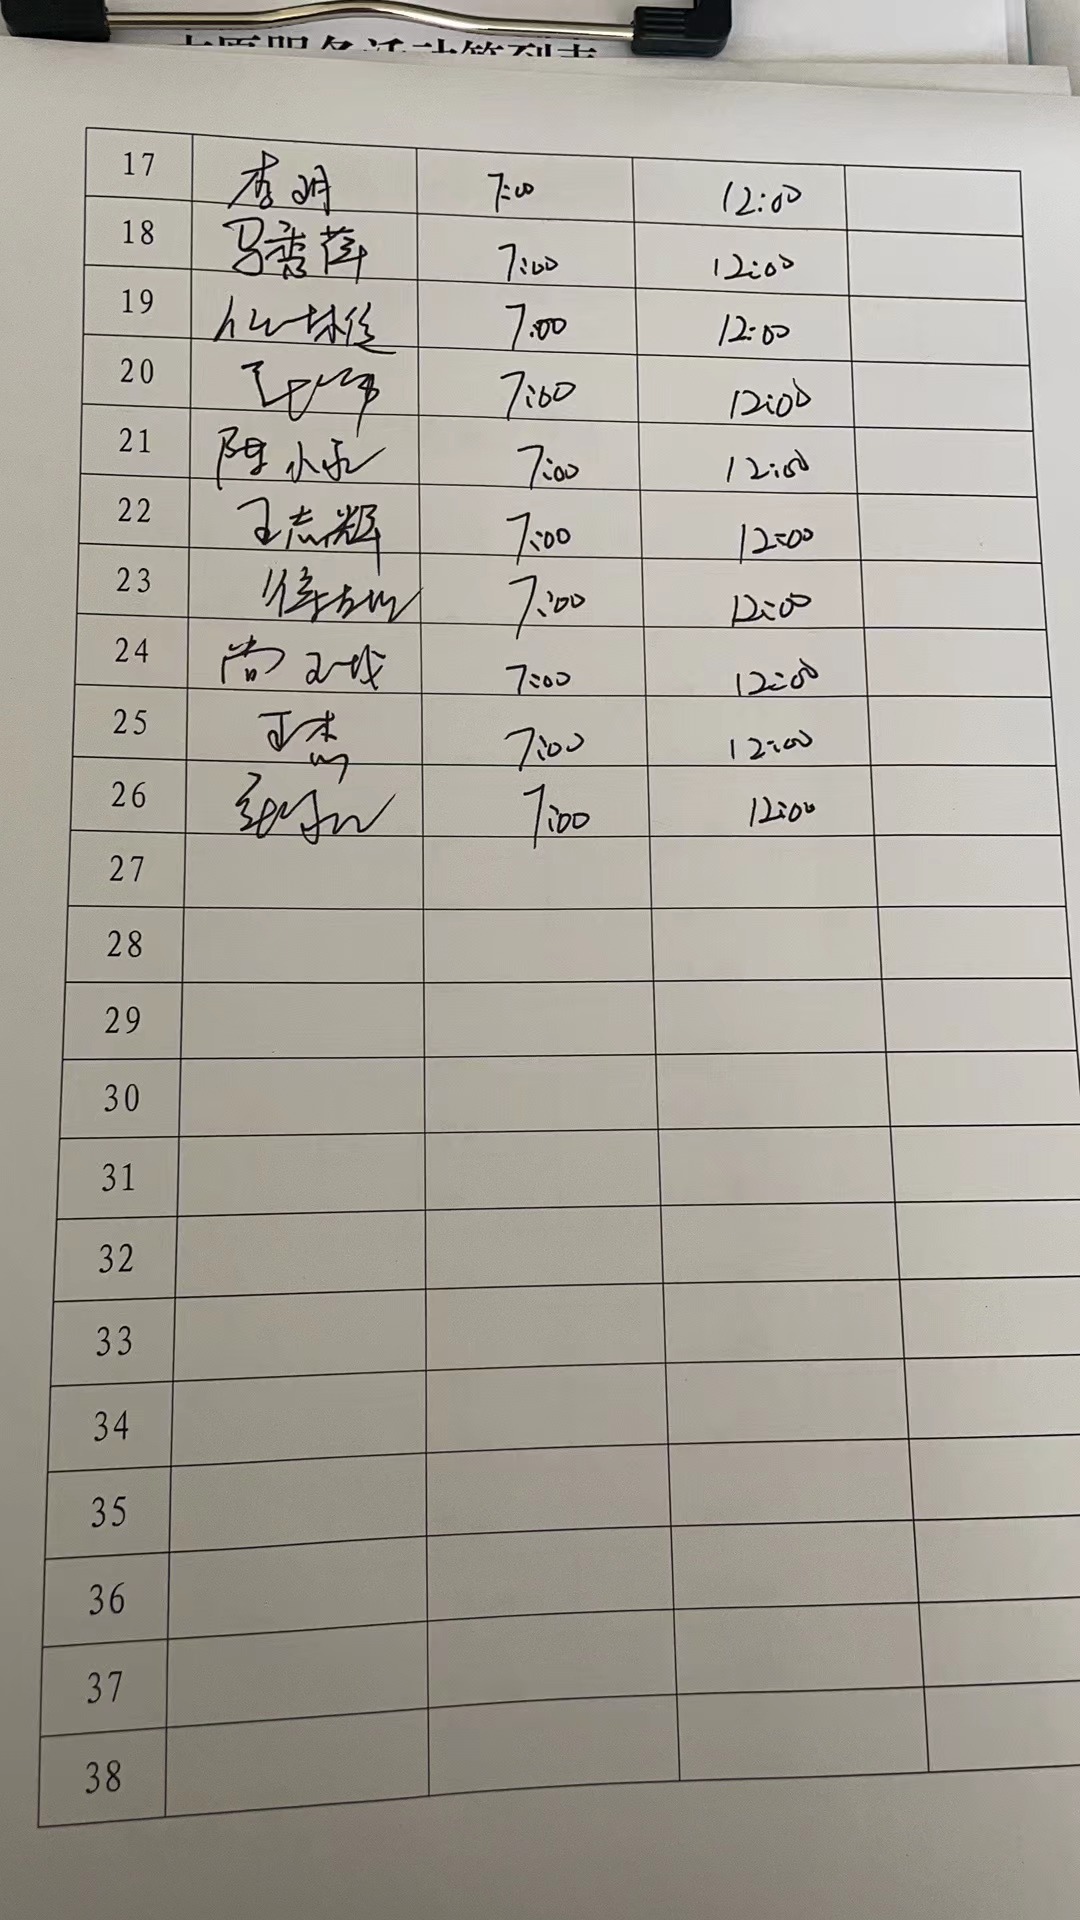 志愿服务活动签到表
17 李明 7:00 12:00
18 马秀萍 7:00 12:00
19 7:00 12:00
20 7:00 12:00
21 陈小永 7:00 12:00
22 王志辉 7:00 12:00
23 7:00 12:00
24 尚 7:00 12:00
25 王杰 7:00 12:00
26 7:00 12:00
27
28
29
30
31
32
33
34
35
36
37
38